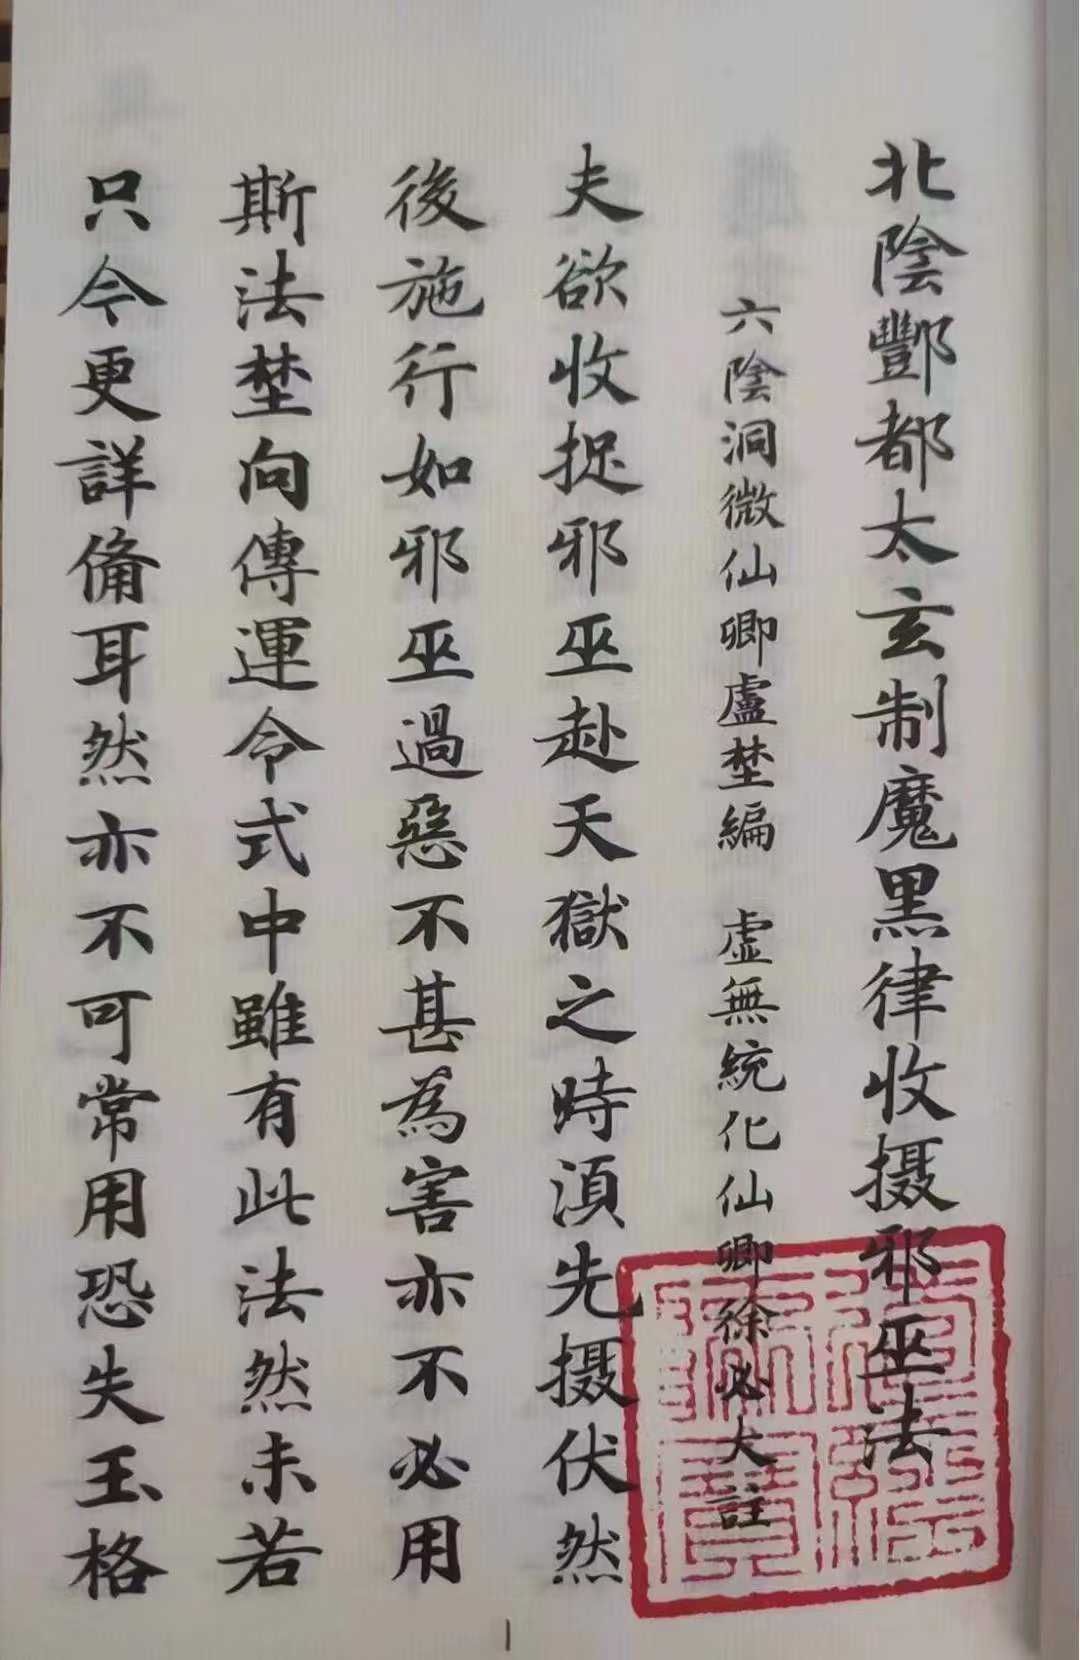 北陰酆都太玄制魔黑律收摄邪巫法
六陰洞微仙卿盧埜編 虛無統化仙卿徐必大註
夫欲收捉邪巫赴天獄之時湏先摄伏然
後施行如邪巫過惡不甚為害亦不必用
斯法埜向傳運令式中雖有此法然未若
只令更詳偹耳然亦不可常用恐失玉格
1